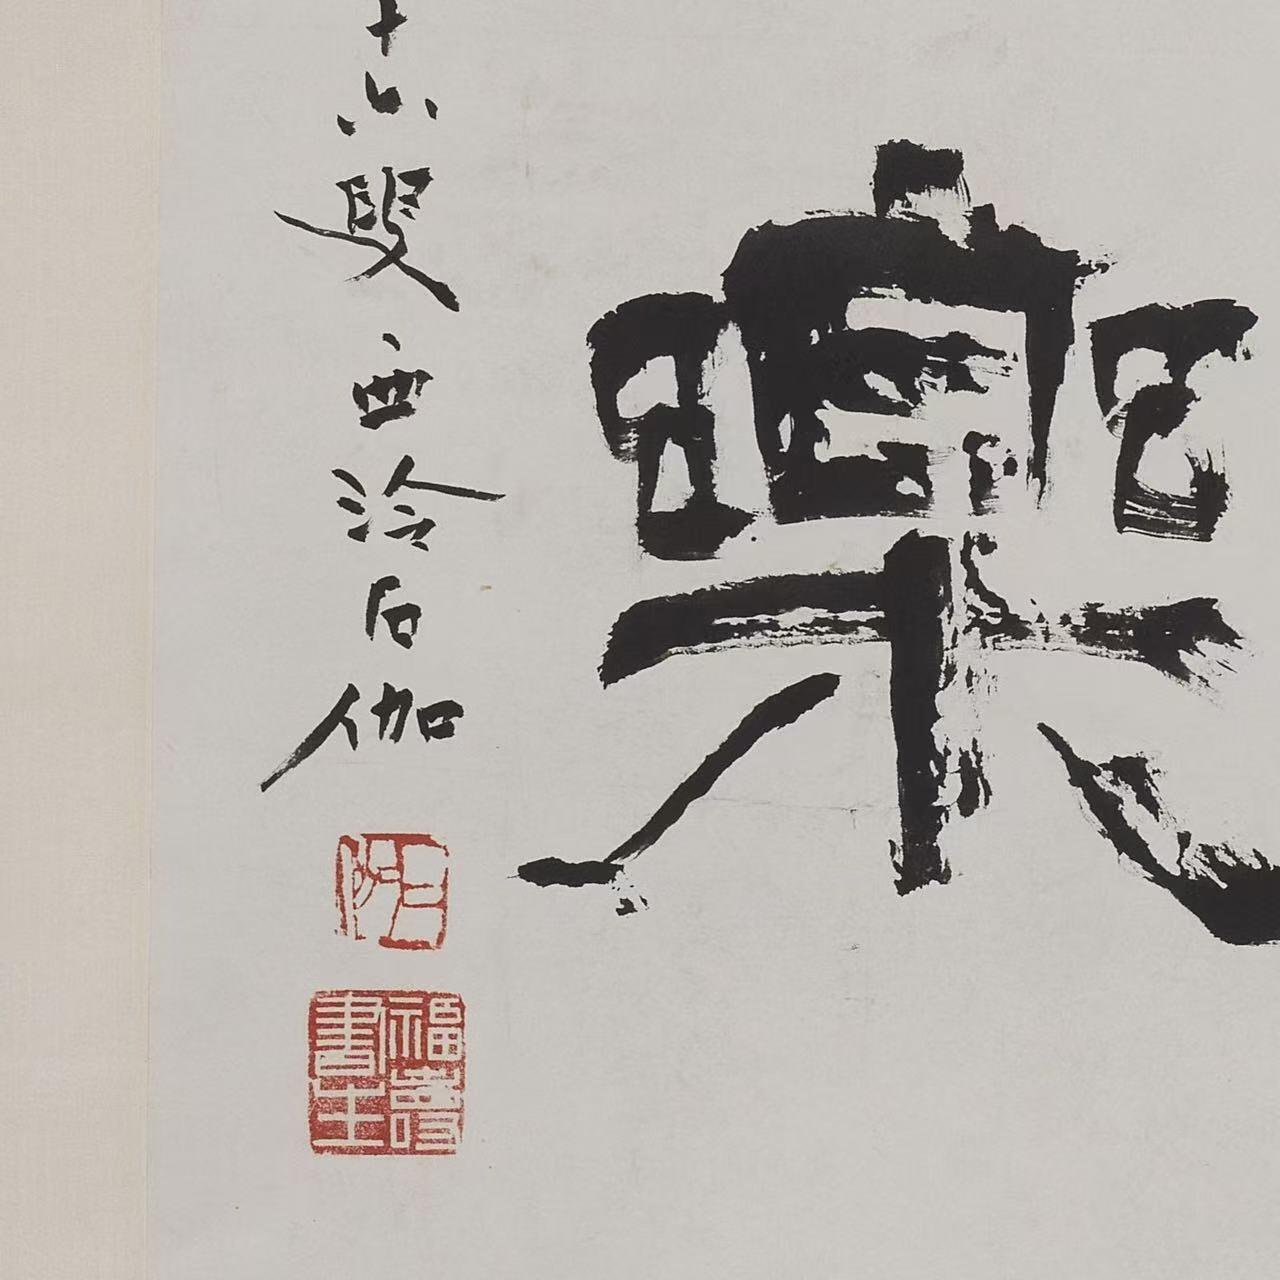 樂
十六叟西泠石伽
石伽
福壽書生